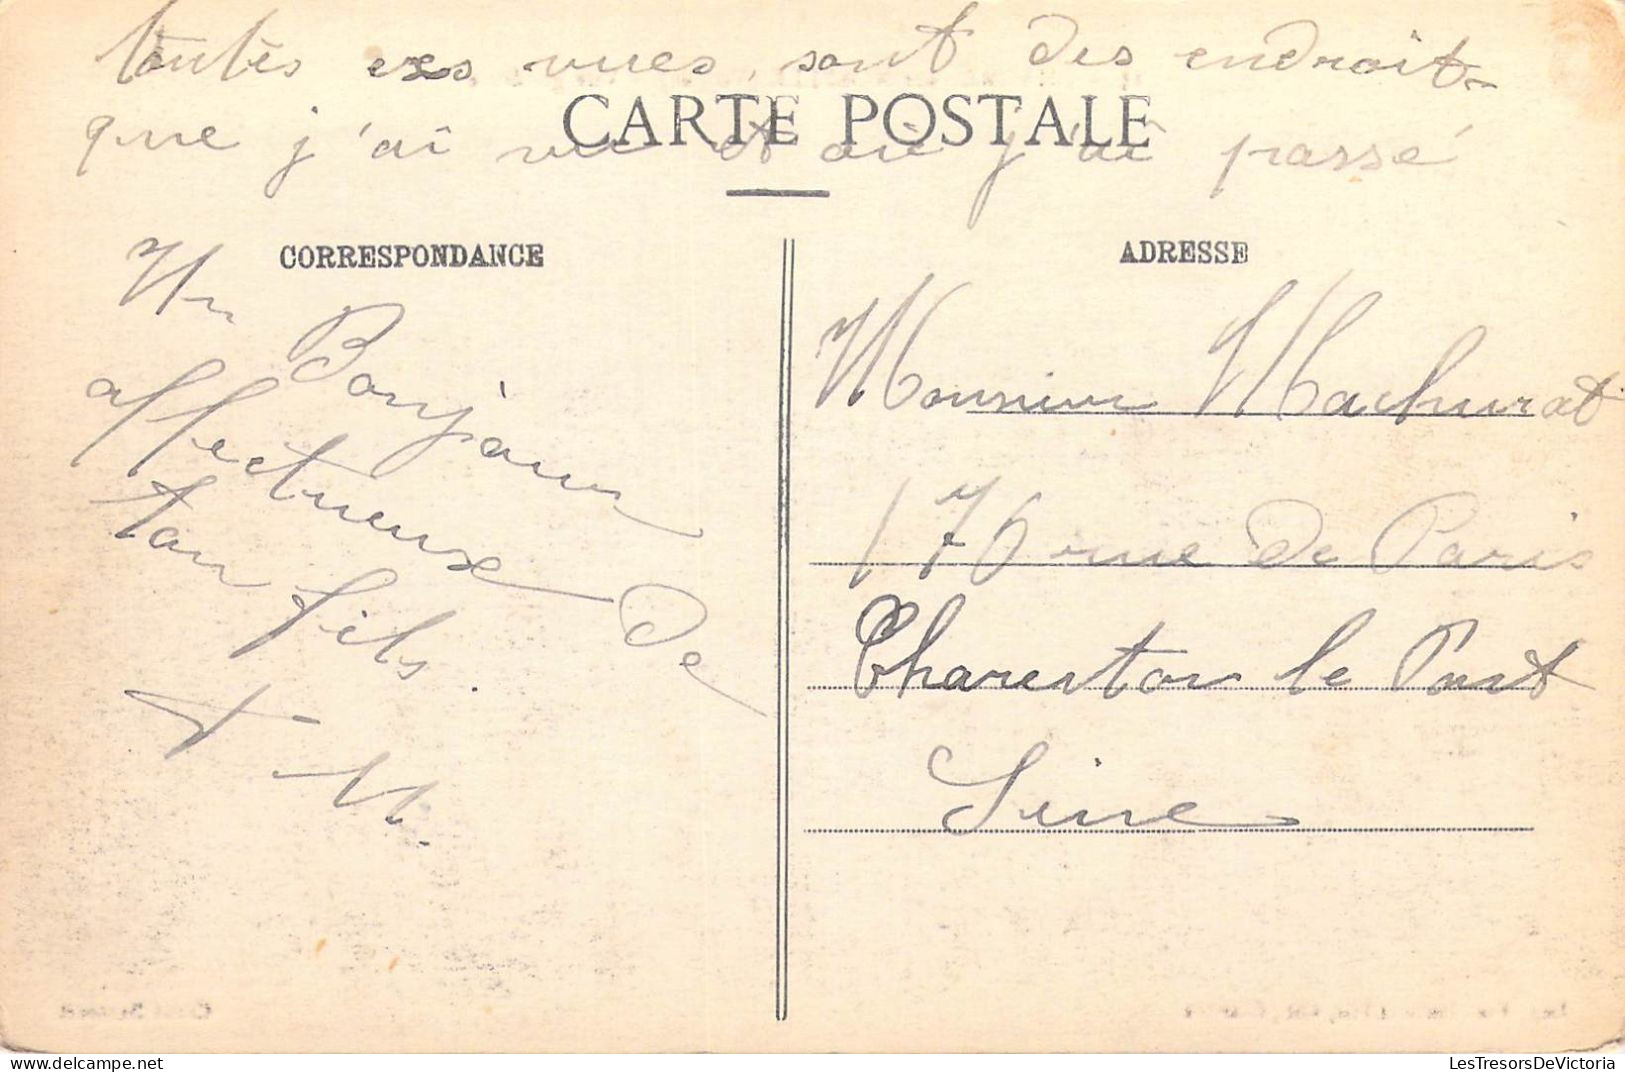 toutes ces vues, sont des endroits
CARTE POSTALE
que j'ai vu et où j'ai passé
CORRESPONDANCE
Un Bonjour
affectueux de
ton fils.
ADRESSE
Monsieur Machurat
176 rue de Paris
Charenton le Pont
Seine
LesTresorsDeVictoria